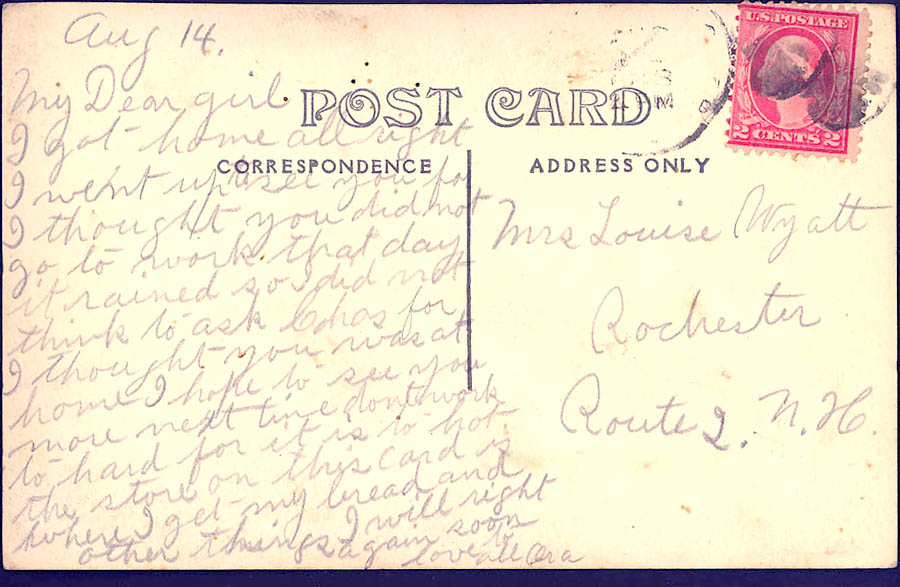 Aug 14.
My Dear girl
I got home all right
I went up to see you for
I thought you did not
go to work that day
it rained so did not
think to ask Chas for
I thought you was at
home I hope to see you
more next time dont work
to hard for it is to hot.
the store on this card is
where I get my bread and
other things I will right
again soon
love to all Ora
POST CARD
CORRESPONDENCE
ADDRESS ONLY
U.S. POSTAGE
2 CENTS 2
PM
Mrs Louise Wyatt
Rochester
Route 2. N. H.